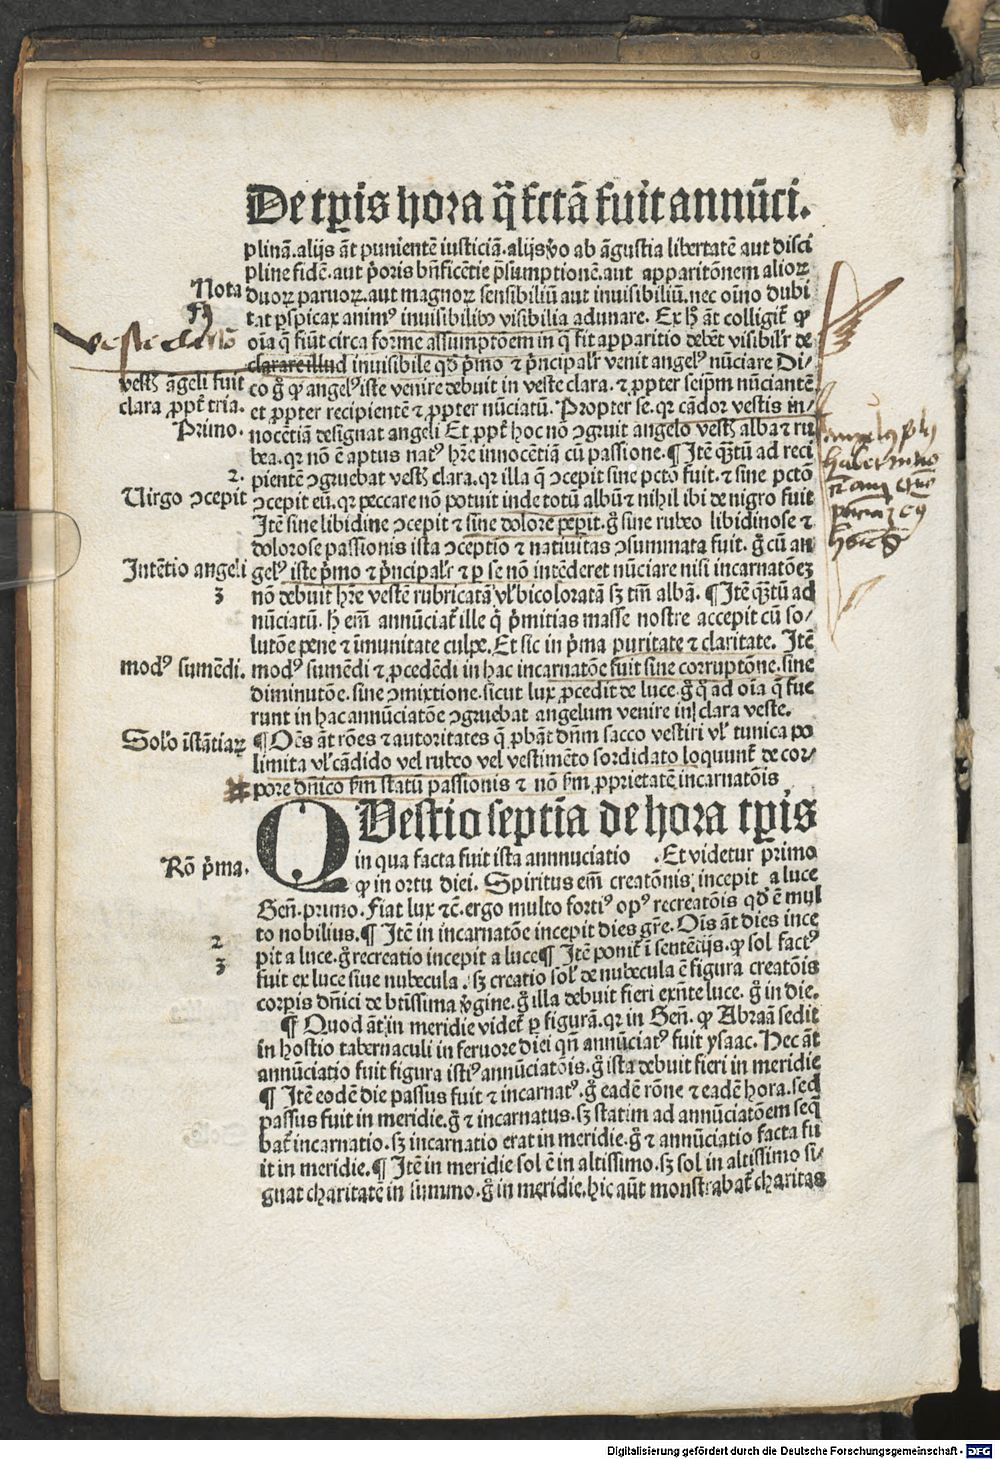 De tꝑis hora q̄ fctā fuit annūci.
plinā. alijs āt punientē iusticiā. alijs ꝟo ab āgustia libertatē aut disci
pline fidē. aut p̄oris bn̄ficētie p̄sumptionē. aut apparitōnem alioꝝ
Nota
duoꝝ paruoꝝ. aut magnoꝝ sensibiliū aut inuisibiliū. nec oīno dubi
tat ꝑspicax animꝰ inuisibilibꝰ visibilia adunare. Ex h̄ āt colligit᷑ ꝙ
veste
oīa q̄ fiūt circa forme assumptōem in q̄ fit apparitio debēt visibilr̄ de
clarare illud inuisibile qd̓ p̄mo ⁊ p̄ncipalr̄ venit angelꝰ nūciare Di-
vestꝭ āgeli fuit
co g̊ ꝙ angelꝰ iste venire debuit in veste clara. ⁊ ꝓpter seip̄m nūciantē
clara ꝓpt̄ tria.
et ꝓpter recipientē ⁊ ꝓpter nūciatū. Propter se. qr cādor vestis in-
Primo.
nocētiā designat angeli Et ꝓpt̄ hoc nō ꝯgruit angelo vestꝭ alba ⁊ ru
bea. qr nō ē aptus natꝰ hr̄e innocētiā cū passione. ¶ Itē qꝫtū ad reci
2.
pientē ꝯgruebat vestꝭ clara. qr illa q̄ ꝯcepit sine pctō fuit. ⁊ sine pctō
Uirgo ꝯcepit
ꝯcepit eū. qr peccare nō potuit inde totū albū ⁊ nihil ibi de nigro fuit
Itē sine libidine ꝯcepit ⁊ sine dolore peꝑit. g̊ sine rubeo libidinose ⁊
dolorose passionis ista ꝯceptio ⁊ natiuitas ꝯsummata fuit. g̊ cū an
Intētio angeli
gelꝰ iste p̄mo ⁊ p̄ncipalr̄ ⁊ ꝑ se nō intēderet nūciare nisi incarnatōeꝫ
3
nō debuit hr̄e vestē rubricatā vl̓ bicoloratā sꝫ tm̄ albā. ¶ Itē qꝫtū ad
nūciatū. h̄ em̄ annūciat᷑ ille q̇ p̄mitias masse nostre accepit cū so-
lutōe pene ⁊ īmunitate culpe. Et sic in p̄ma puritate ⁊ claritate. Itē
modꝰ sumēdi.
modꝰ sumēdi ⁊ ꝓcedēdi in hac incarnatōe fuit sine corruptōne. sine
diminutōe. sine ꝯmixtione. sicut lux ꝓcedit de luce. g̊ q̊ ad oīa q̄ fue
runt in hac annūciatōe ꝯgruebat angelum venire in clara veste.
Solo īstātiaꝝ
¶ Oēs āt rōes ⁊ autoritates q̄ ꝓbāt dn̄m sacco vestiri vl̓ tunica po
limita vl̓ cādido vel rubeo vel vestimēto sordidato loquunt᷑ de cor-
pore dn̄ico ẜm statū passionis ⁊ nō ẜm ꝓprietatē incarnatōis
QVestio septīa de hora tꝑis
in qua facta fuit ista annnuciatio . Et videtur primo
Rō p̄ma.
ꝙ in ortu diei. Spiritus em̄ creatōnis incepit a luce
Gen̄. primo. Fiat lux ⁊c̄. ergo multo fortiꝰ opꝰ recreatōis qd̓ ē mul
to nobilius. ¶ Itē in incarnatōe incepit dies gr̄e. Oīs āt dies ince
2
pit a luce. g̊ recreatio incepit a luce ¶ Itē ponit᷑ ī sentētijs. ꝙ sol factꝰ
3
fuit ex luce siue nubecula. sꝫ creatio solꝭ de nubecula ē figura creatōis
corꝑis dn̄ici de btīssima ꝟgine. g̊ illa debuit fieri exn̄te luce. g̊ in die.
¶ Quod āt in meridie videt᷑ ꝑ figurā. qr in Gen̄. ꝙ Abraā sedit
in hostio tabernaculi in feruore diei qn̄ annūciatꝰ fuit ysaac. Hec āt
annūciatio fuit figura istiꝰ annūciatōis. g̊ ista debuit fieri in meridie
¶ Itē eodē die passus fuit ⁊ incarnatꝰ. g̊ eadē rōne ⁊ eadē hora. sed
passus fuit in meridie. g̊ ⁊ incarnatus. sꝫ statim ad annūciatōem seq̄
bat᷑ incarnatio. sꝫ incarnatio erat in meridie. g̊ ⁊ annūciatio facta fu
it in meridie. ¶ Itē in meridie sol ē in altissimo. sꝫ sol in altissimo si-
gnat charitatē in summo. g̊ in meridie. hic aūt monstrabat᷑ charitas
Digitalisierung gefördert durch die Deutsche Forschungsgemeinschaft - DFG